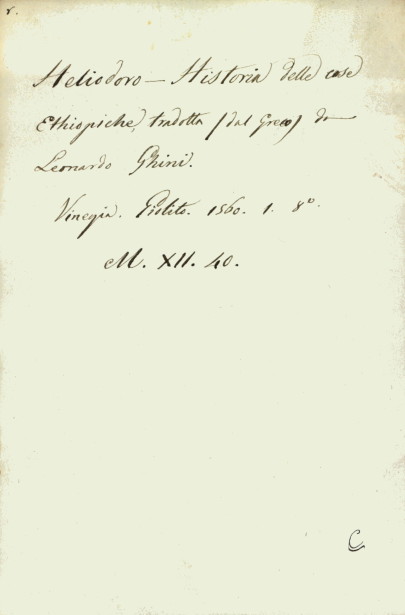 r.
Heliodoro — Historia delle cose
Ethiopiche, tradotta (dal Greco) da
Leonardo Ghini.
Vinegia. Giolito. 1560. 1. 8º.
M. XII. 40.
C